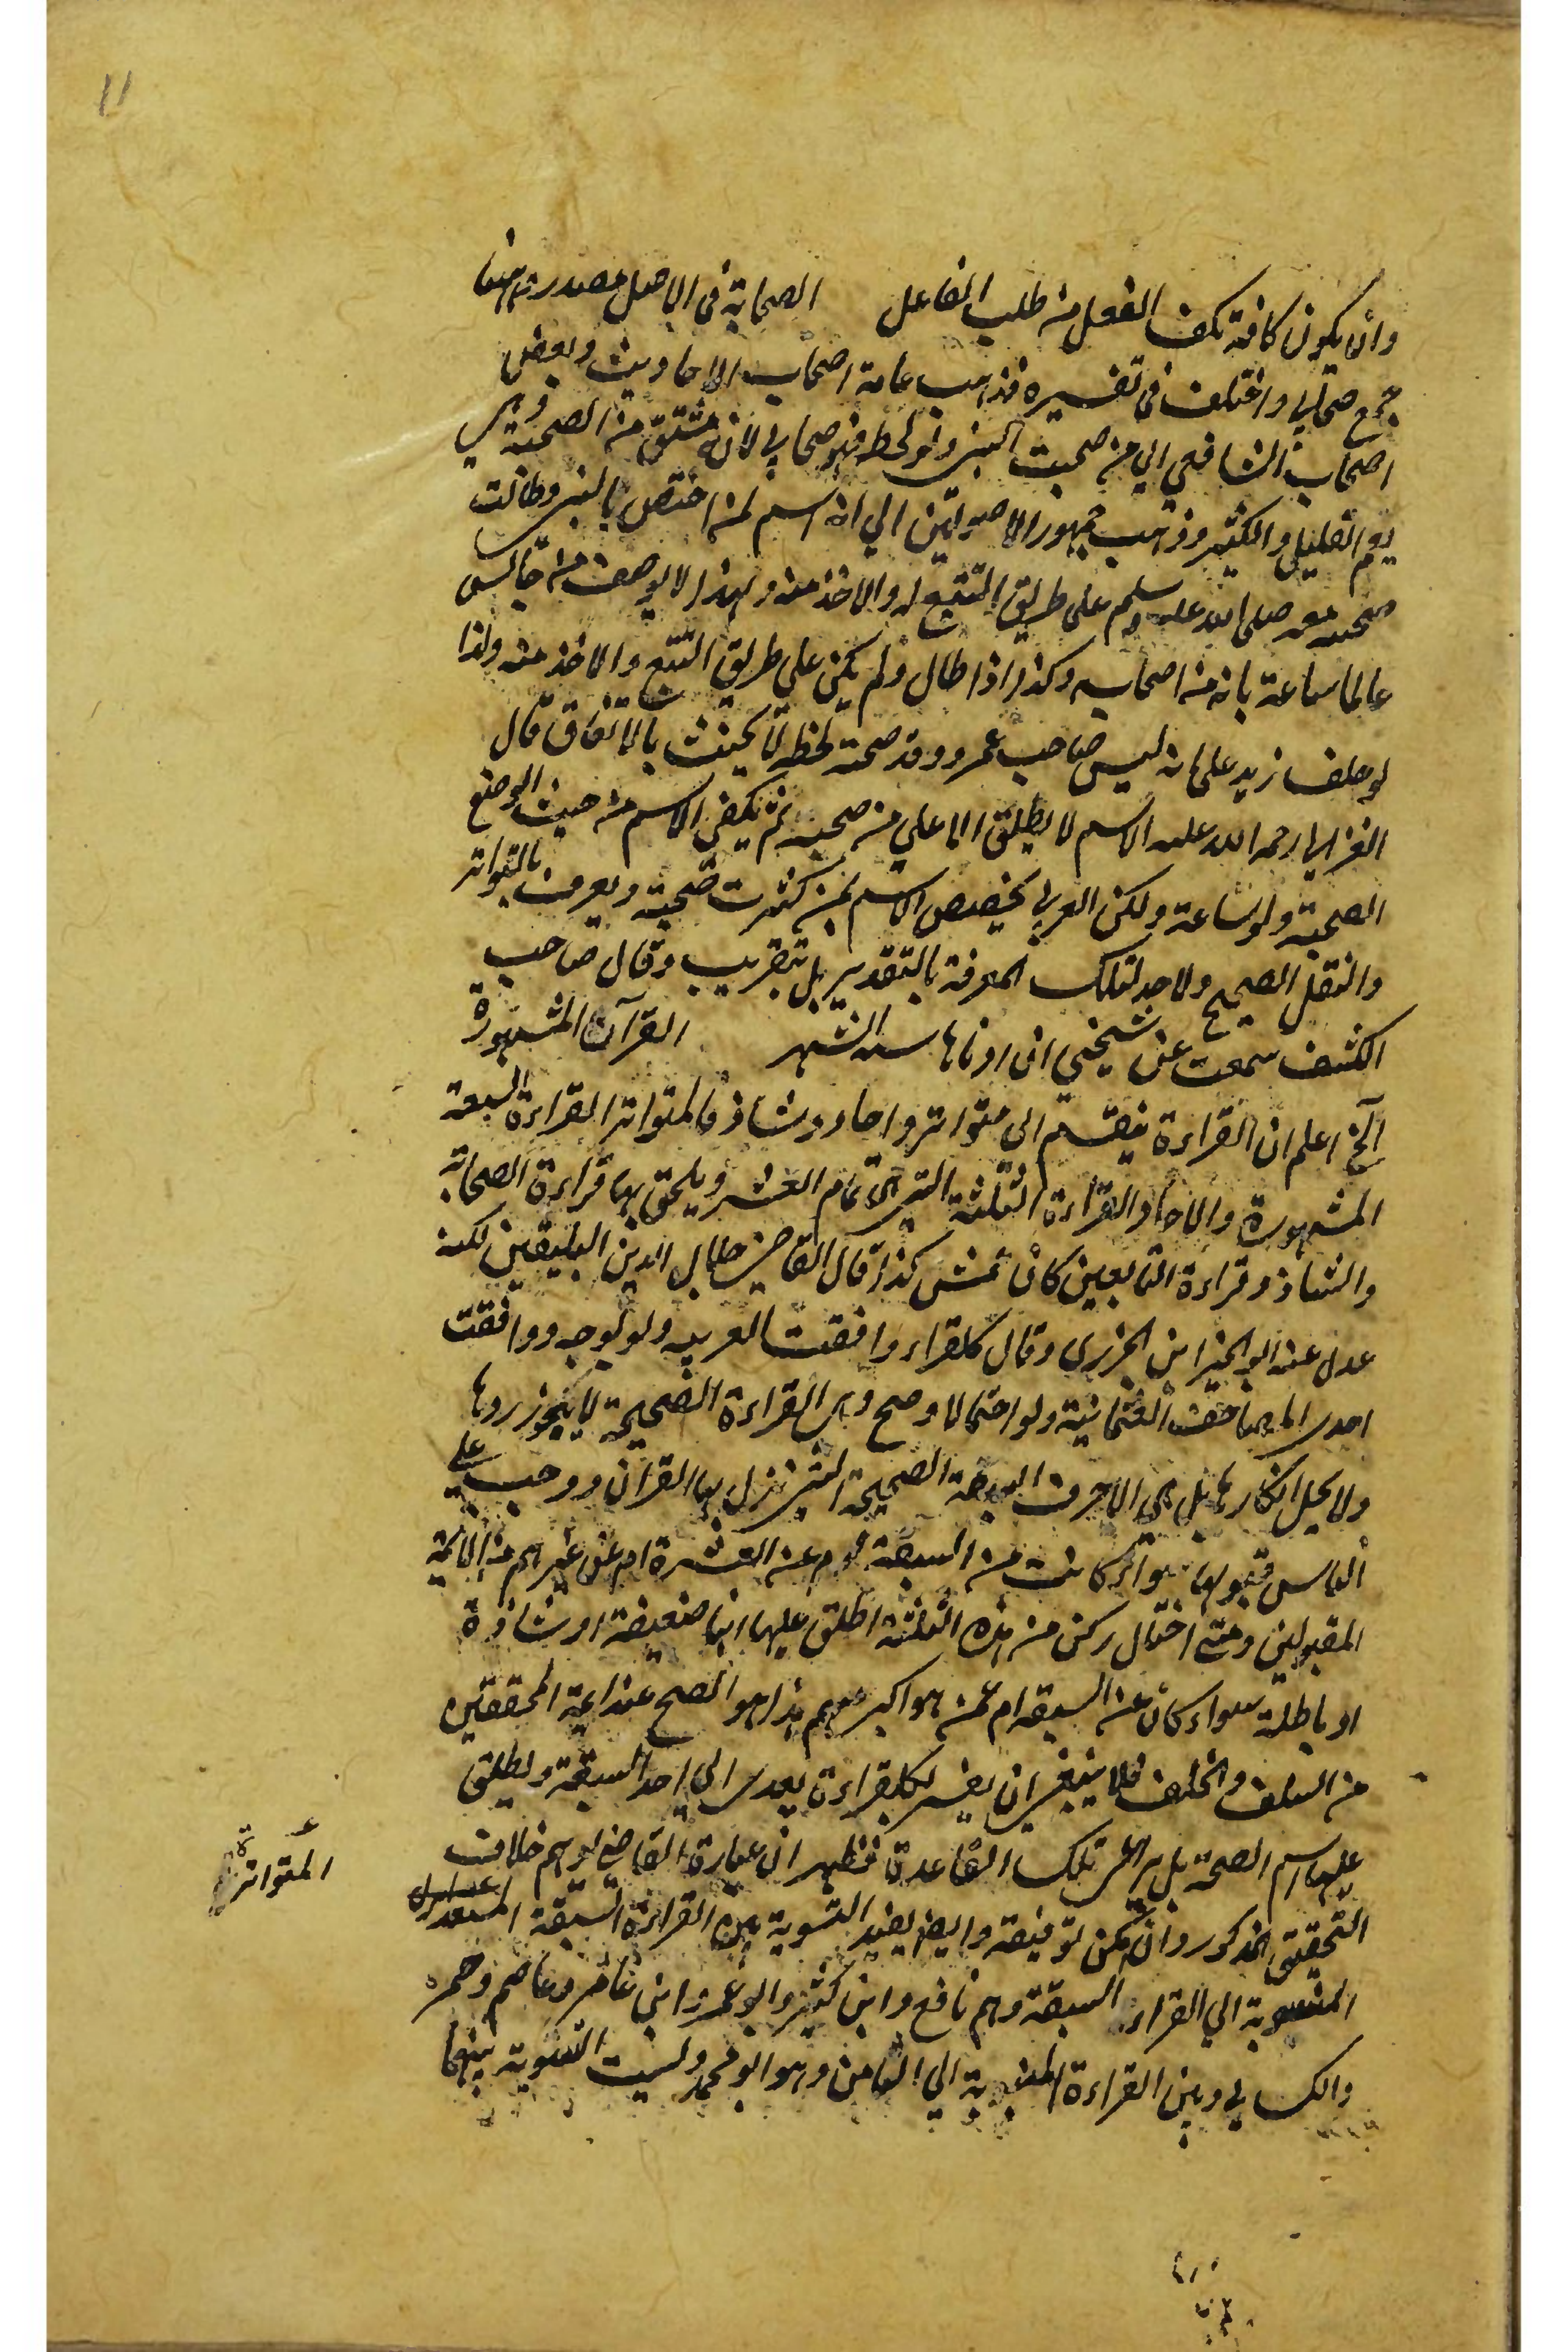 ١١
وان يكون كافة تكف الفعل من طلب الفاعل الصحابة في الاصل مصدر
جمع صحابي واختلف في تفسيره فذهب عامة اصحاب الاحاديث وبعض
اصحاب الشافعي الي من صحبت النبي ولو لحظه فهو صحابي لانه مشتق من الصحبة وهي
يعم القليل والكثير وذهب جمهور الاصوليين الي انه اسم لمن اختص بالنبي وطالت
صحبته معه صلى الله عليه وسلم على طريق التتبع له والاخذ منه ولهذا لا يوصف من جالس
عالما ساعة بانه من اصحابه وكذا اذا طال ولم يكن علي طريق التتبع والاخذ منه ولذا
لو حلف زيد على انه ليس صاحب عمرو وقد صحبه لحظه لا يحنث بالاتفاق قال
الغزالي رحمه الله عليه الاسم لا يطلق الا علي من صحبه ثم يكفي الاسم من حيث الوضع
الصحبة ولو ساعة ولكن العرف يخصص الاسم بمن كثرت صحبته ويعرف بالتواتر
والنقل الصحيح ولا حد لتلك المعرفة بالتقدير بل بتقريب وقال صاحب
الكشف سمعت عن شيخي ان ادناها ستة اشهر القرآن المشهورة
آلخ اعلم ان القراءة ينقسم الى متواتر واحاد وشاذ فالمتواتر القراءة السبعة
المشهورة والاحاد القراءة الثلثة التي هي تمام العشر ويلحق بها قراءة الصحابة
والشاذ وقراءة التابعين كالاعمش كذا قال القاضي جلال الدين البلقيني لكنه
عدل عنه ابو الخير ابن الجزري وقال كل قراءة وافقت العربيه ولو بوجه ووافقت
احدى المصاحف العثمانية ولو احتمالا وصح وهي القراءة الصحيحة لا يجوز ردها
ولا يحل انكارها بل هي الاحرف السبعة الصحيحة التي نزل بها القران ووجب علي
الناس قبولها سواء كانت من السبعة ام عن العشرة ام عن غيرهم من الائمة
المقبولين ومتى اختال ركن من هذه الثلثة اطلق عليها انها ضعيفة او شاذة
او باطلة سواء كان عن السبعة ام عمن هو اكبر منهم هذا هو الصح عند ائمة المحققين
من السلف والخلف فلا ينبغي ان يغتر بكل قراءة يعدى الي احد السبعة ويطلق
عليها اسم الصحة بل يراعى تلك القاعدة فظهر ان عبارة القاضي يوهم خلاف
التحقيق المذكور وان يمكن توفيقة وايضا يفيد التسوية بين القراءة السبعة
المتواترة
المنسوبة الي القراء السبعة وهم نافع وابن كثير وابو عمر وابن عامر وعاصم وحمزه
والكسايي وبين القراءة المنسوبة الي الثامن وهو ابو محمد وليست التسوية بينهما